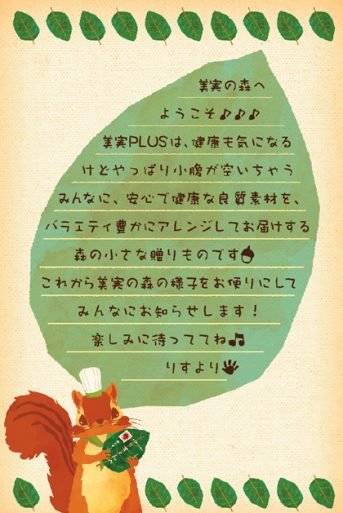 美実の森へ
ようこそ♪♪♪
美実PLUSは、健康も気になる
けどやっぱり小腹が空いちゃう
みんなに、安心で健康な良質素材を、
バラエティ豊かにアレンジしてお届けする
森の小さな贈りものです
これから美実の森の様子をお便りにして
みんなにお知らせします！
楽しみに待っててね♫
りすより